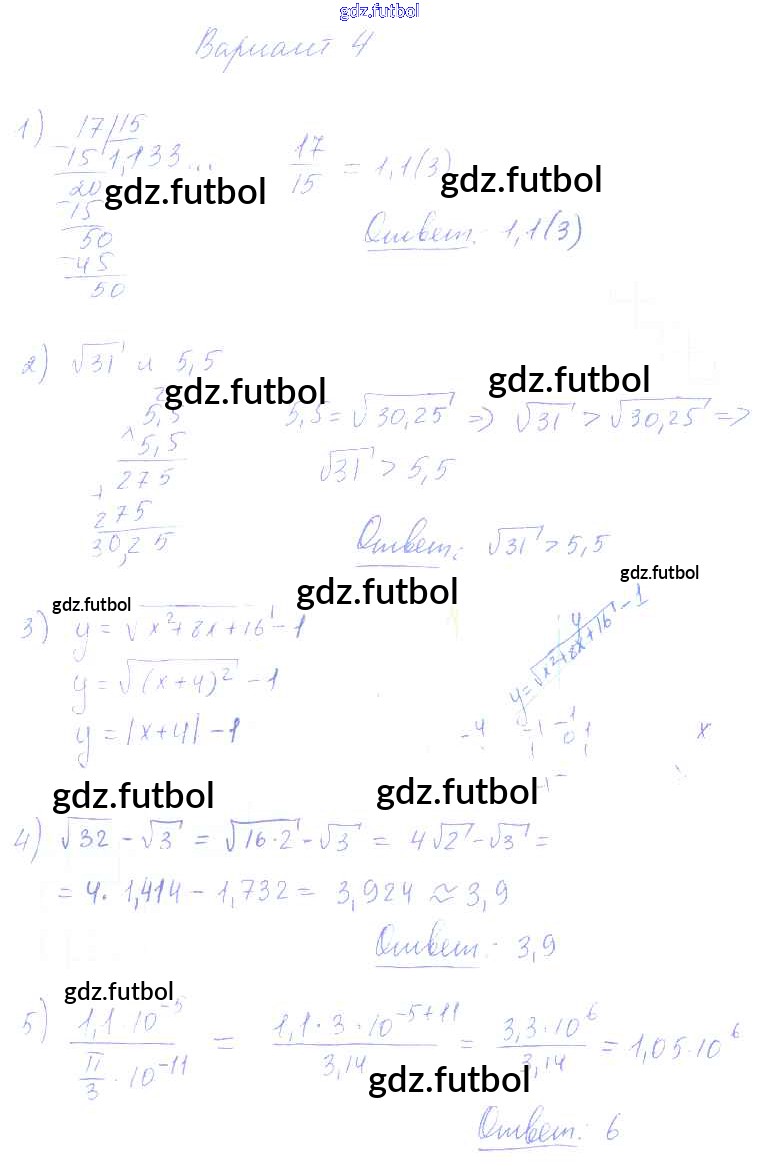 gdz.futbol
Вариант 4
1) 17 | 15
- 15 1,133...
20
- 15
50
- 45
50
17/15 = 1,1(3)
gdz.futbol
gdz.futbol
Ответ: 1,1(3)
2) √31 и 5,5
gdz.futbol
gdz.futbol
5,5
× 5,5
+ 275
275
30,25
5,5 = √30,25 => √31 > √30,25 =>
√31 > 5,5
Ответ: √31 > 5,5
gdz.futbol
gdz.futbol
gdz.futbol
3) y = √x²+8x+16 - 1
y = √(x+4)² - 1
y = |x+4| - 1
y
y = √x²+8x+16 - 1
-4 -1 0 1 x
1
-1
gdz.futbol
gdz.futbol
4) √32 - √3 = √16·2 - √3 = 4√2 - √3 =
= 4·1,414 - 1,732 = 3,924 ≈ 3,9
Ответ: 3,9
gdz.futbol
5) (1,1·10⁻⁵)/(π/3 · 10⁻¹¹) = (1,1·3·10⁻⁵⁺¹¹)/3,14 = (3,3·10⁶)/3,14 = 1,05·10⁶
gdz.futbol
Ответ: 6